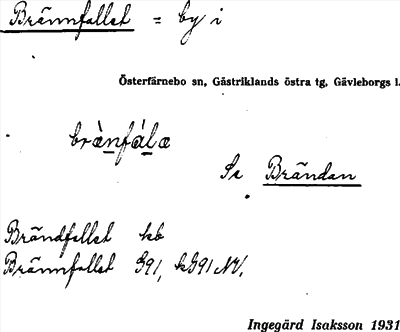 Brännfallet = by i
Österfärnebo sn, Gästriklands östra tg, Gävleborgs l.
brànfála
Se Brändan
Brändfallet kb
Brännfallet G91, kG91 NV.
Ingegärd Isaksson 1931